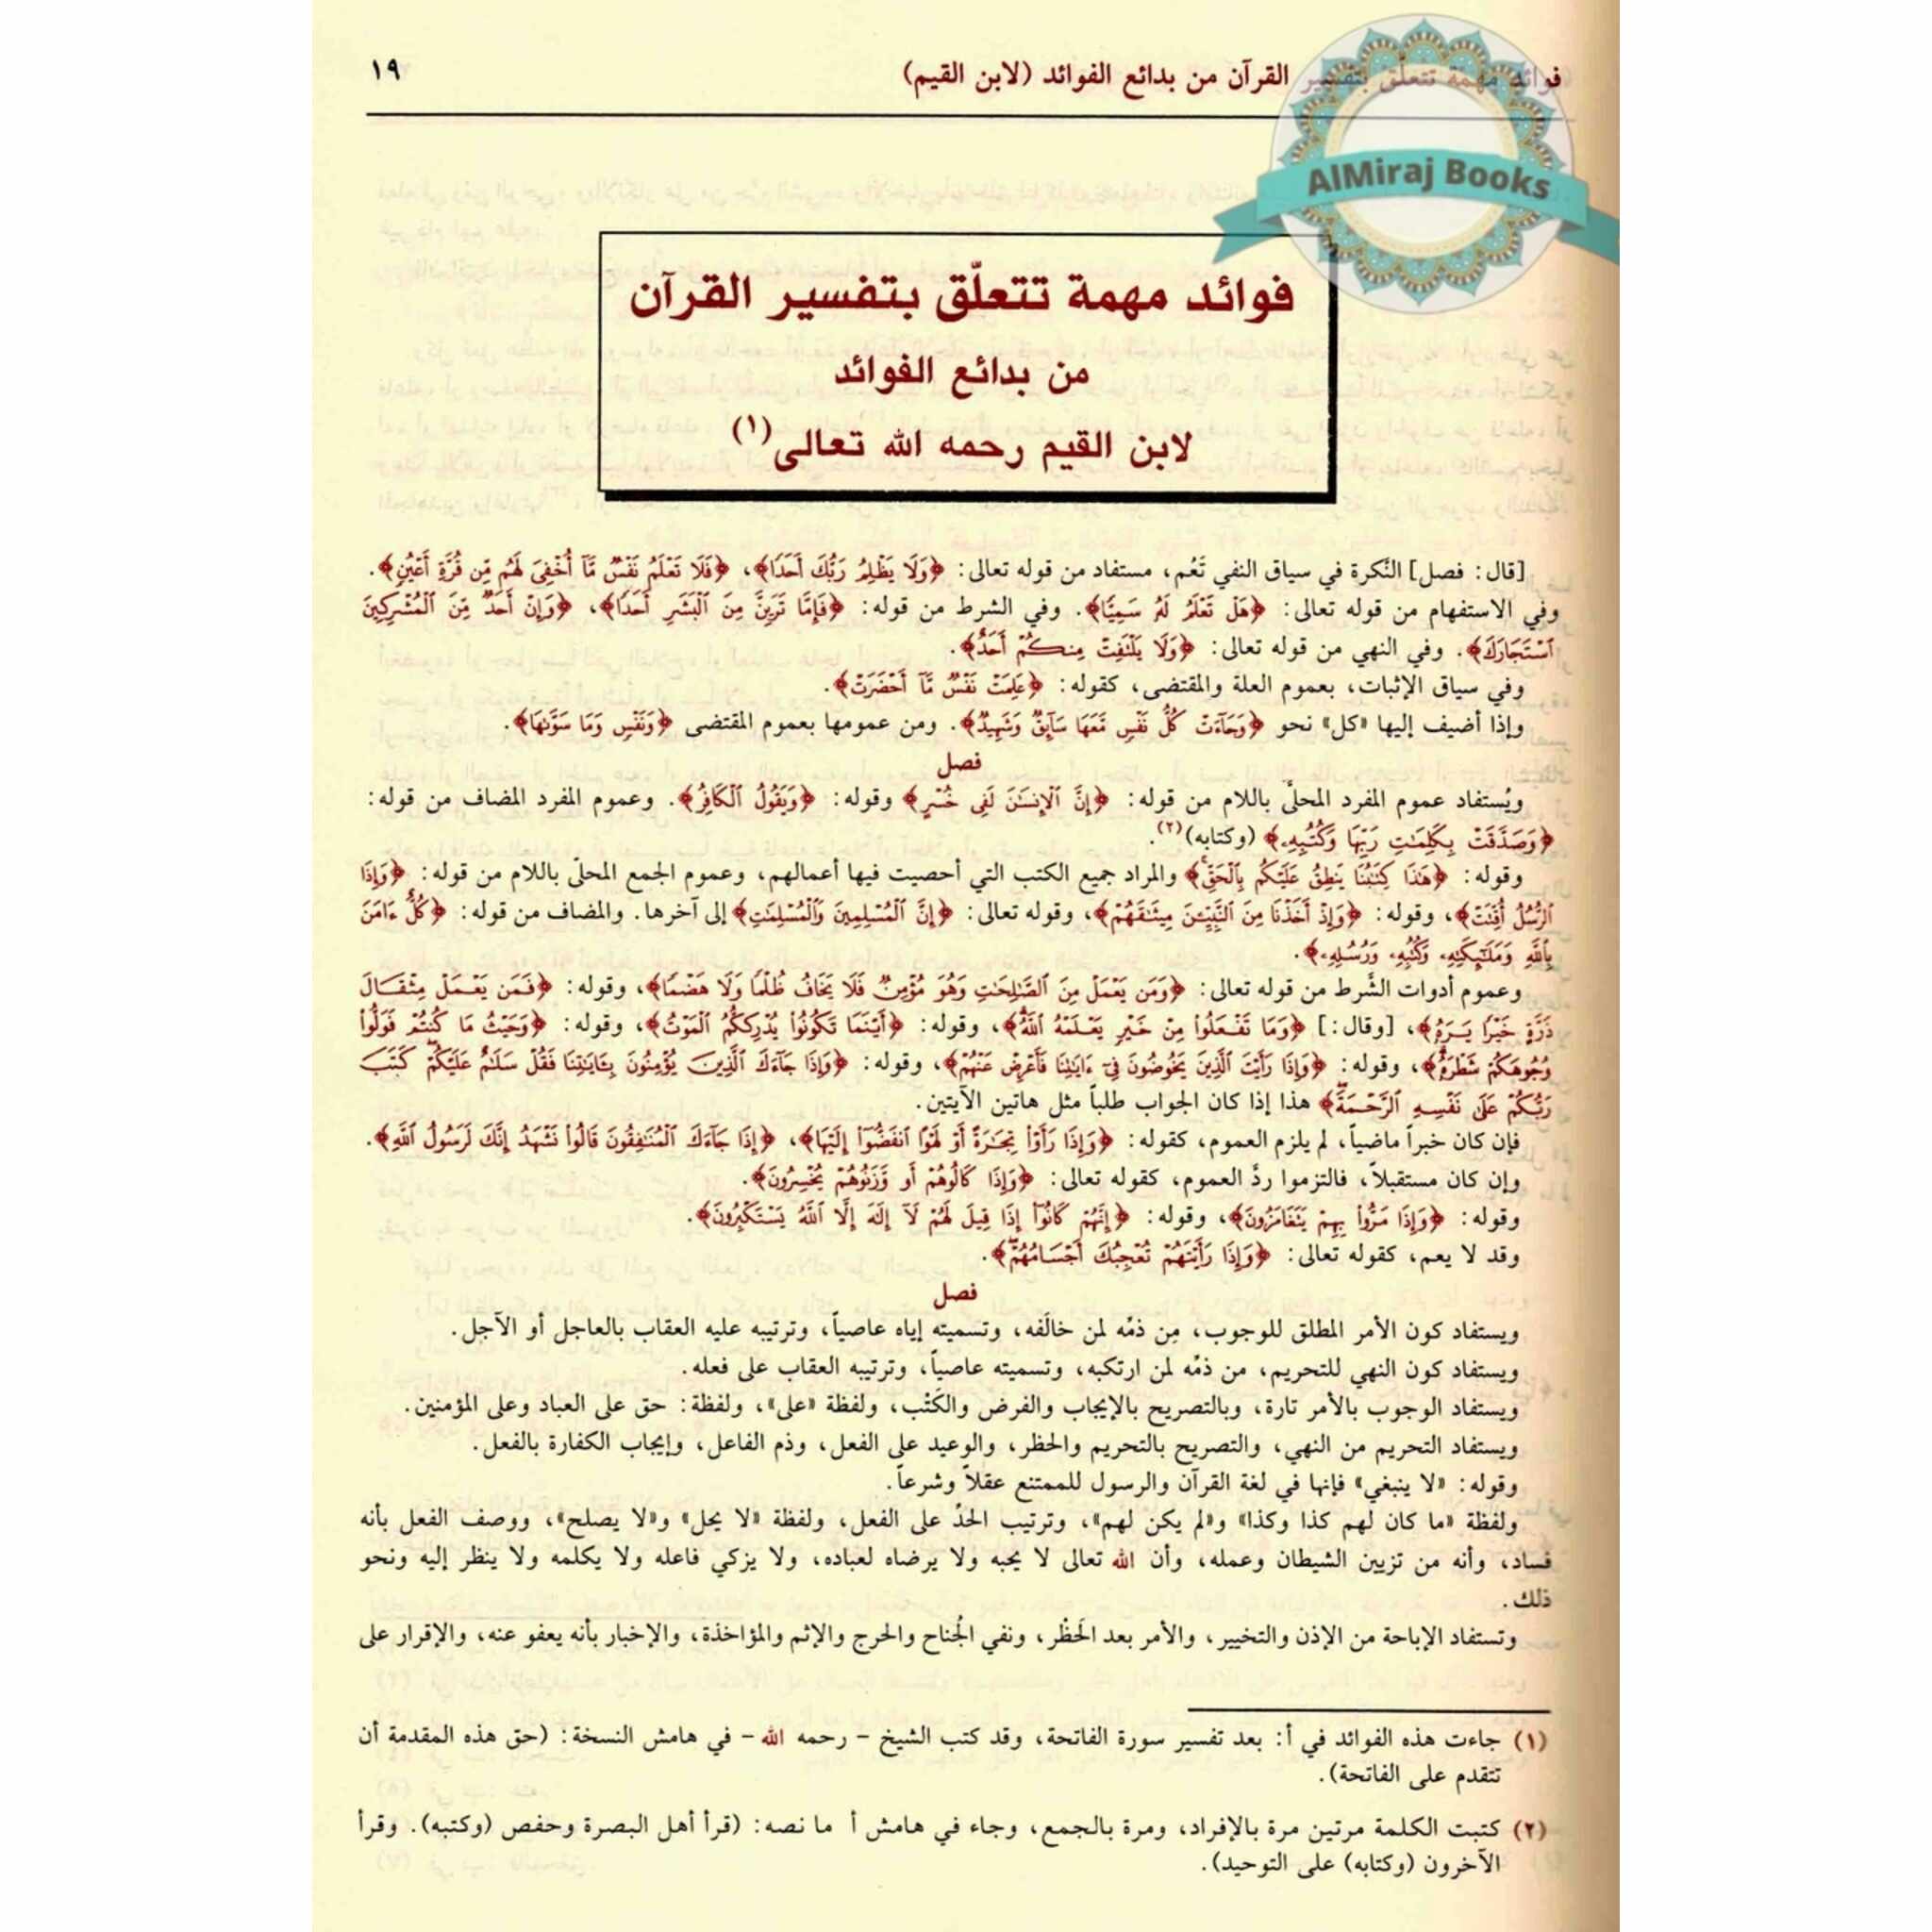 فوائد مهمة تتعلّق بتفسير القرآن من بدائع الفوائد (لابن القيم)
١٩
AlMiraj Books
فوائد مهمة تتعلّق بتفسير القرآن
من بدائع الفوائد
لابن القيم رحمه الله تعالى(١)
[قال: فصل] النَّكرة في سياق النفي تَعُم، مستفاد من قوله تعالى: ﴿وَلَا يَظْلِمُ رَبُّكَ أَحَدًا﴾، ﴿فَلَا تَعْلَمُ نَفْسٌ مَّآ أُخْفِىَ لَهُم مِّن قُرَّةِ أَعْيُنٍ﴾.
وفي الاستفهام من قوله تعالى: ﴿هَلْ تَعْلَمُ لَهُۥ سَمِيًّا﴾. وفي الشرط من قوله: ﴿فَإِمَّا تَرَيِنَّ مِنَ ٱلْبَشَرِ أَحَدًا﴾، ﴿وَإِنْ أَحَدٌ مِّنَ ٱلْمُشْرِكِينَ
ٱسْتَجَارَكَ﴾. وفي النهي من قوله تعالى: ﴿وَلَا يَلْتَفِتْ مِنكُمْ أَحَدٌ﴾.
وفي سياق الإثبات، بعموم العلة والمقتضى، كقوله: ﴿عَلِمَتْ نَفْسٌ مَّآ أَحْضَرَتْ﴾.
وإذا أضيف إليها «كل» نحو ﴿وَجَآءَتْ كُلُّ نَفْسٍ مَّعَهَا سَآئِقٌ وَشَهِيدٌ﴾. ومن عمومها بعموم المقتضى ﴿وَنَفْسٍ وَمَا سَوَّىٰهَا﴾.
فصل
ويُستفاد عموم المفرد المحلىَّ باللام من قوله: ﴿إِنَّ ٱلْإِنسَٰنَ لَفِى خُسْرٍ﴾ وقوله: ﴿وَيَقُولُ ٱلْكَافِرُ﴾. وعموم المفرد المضاف من قوله:
﴿وَصَدَّقَتْ بِكَلِمَٰتِ رَبِّهَا وَكُتُبِهِۦ﴾ (وكتابه)(٢).
وقوله: ﴿هَٰذَا كِتَٰبُنَا يَنطِقُ عَلَيْكُم بِٱلْحَقِّ﴾ والمراد جميع الكتب التي أحصيت فيها أعمالهم، وعموم الجمع المحلّى باللام من قوله: ﴿وَإِذَا
ٱلرُّسُلُ أُقِّتَتْ﴾، وقوله: ﴿وَإِذْ أَخَذْنَا مِنَ ٱلنَّبِيِّـۧنَ مِيثَٰقَهُمْ﴾، وقوله تعالى: ﴿إِنَّ ٱلْمُسْلِمِينَ وَٱلْمُسْلِمَٰتِ﴾ إلى آخرها. والمضاف من قوله: ﴿كُلٌّ ءَامَنَ
بِٱللَّهِ وَمَلَٰٓئِكَتِهِۦ وَكُتُبِهِۦ وَرُسُلِهِۦ﴾.
وعموم أدوات الشَّرط من قوله تعالى: ﴿وَمَن يَعْمَلْ مِنَ ٱلصَّٰلِحَٰتِ وَهُوَ مُؤْمِنٌ فَلَا يَخَافُ ظُلْمًا وَلَا هَضْمًا﴾، وقوله: ﴿فَمَن يَعْمَلْ مِثْقَالَ
ذَرَّةٍ خَيْرًا يَرَهُۥ﴾، [وقال:] ﴿وَمَا تَفْعَلُوا۟ مِنْ خَيْرٍ يَعْلَمْهُ ٱللَّهُ﴾، وقوله: ﴿أَيْنَمَا تَكُونُوا۟ يُدْرِككُّمُ ٱلْمَوْتُ﴾، وقوله: ﴿وَحَيْثُ مَا كُنتُمْ فَوَلُّوا۟
وُجُوهَكُمْ شَطْرَهُۥ﴾، وقوله: ﴿وَإِذَا رَأَيْتَ ٱلَّذِينَ يَخُوضُونَ فِىٓ ءَايَٰتِنَا فَأَعْرِضْ عَنْهُمْ﴾، وقوله: ﴿وَإِذَا جَآءَكَ ٱلَّذِينَ يُؤْمِنُونَ بِـَٔايَٰتِنَا فَقُلْ سَلَٰمٌ عَلَيْكُمْ كَتَبَ
رَبُّكُمْ عَلَىٰ نَفْسِهِ ٱلرَّحْمَةَ﴾ هذا إذا كان الجواب طلباً مثل هاتين الآيتين.
فإن كان خبراً ماضياً، لم يلزم العموم، كقوله: ﴿وَإِذَا رَأَوْا۟ تِجَٰرَةً أَوْ لَهْوًا ٱنفَضُّوٓا۟ إِلَيْهَا﴾، ﴿إِذَا جَآءَكَ ٱلْمُنَٰفِقُونَ قَالُوا۟ نَشْهَدُ إِنَّكَ لَرَسُولُ ٱللَّهِ﴾.
وإن كان مستقبلاً، فالتزموا ردَّ العموم، كقوله تعالى: ﴿وَإِذَا كَالُوهُمْ أَو وَّزَنُوهُمْ يُخْسِرُونَ﴾.
وقوله: ﴿وَإِذَا مَرُّوا۟ بِهِمْ يَتَغَامَزُونَ﴾، وقوله: ﴿إِنَّهُمْ كَانُوٓا۟ إِذَا قِيلَ لَهُمْ لَآ إِلَٰهَ إِلَّا ٱللَّهُ يَسْتَكْبِرُونَ﴾.
وقد لا يعم، كقوله تعالى: ﴿وَإِذَا رَأَيْتَهُمْ تُعْجِبُكَ أَجْسَامُهُمْ﴾.
فصل
ويستفاد كون الأمر المطلق للوجوب، مِن ذمِّه لمن خالَفه، وتسميته إياه عاصياً، وترتيبه عليه العقاب بالعاجل أو الآجل.
ويستفاد كون النهي للتحريم، من ذمِّه لمن ارتكبه، وتسميته عاصياً، وترتيبه العقاب على فعله.
ويستفاد الوجوب بالأمر تارة، وبالتصريح بالإيجاب والفرض والكَتْب، ولفظة «على»، ولفظة: حق على العباد وعلى المؤمنين.
ويستفاد التحريم من النهي، والتصريح بالتحريم والحظر، والوعيد على الفعل، وذم الفاعل، وإيجاب الكفارة بالفعل.
وقوله: «لا ينبغي» فإنها في لغة القرآن والرسول للممتنع عقلاً وشرعاً.
ولفظة «ما كان لهم كذا وكذا» و«لم يكن لهم»، وترتيب الحدِّ على الفعل، ولفظة «لا يحل» و«لا يصلح»، ووصف الفعل بأنه
فساد، وأنه من تزيين الشيطان وعمله، وأن الله تعالى لا يحبه ولا يرضاه لعباده، ولا يزكي فاعله ولا يكلمه ولا ينظر إليه ونحو
ذلك.
وتستفاد الإباحة من الإذن والتخيير، والأمر بعد الحَظْر، ونفي الجُناح والحرج والإثم والمؤاخذة، والإخبار بأنه يعفو عنه، والإقرار على
(١) جاءت هذه الفوائد في أ: بعد تفسير سورة الفاتحة، وقد كتب الشيخ - رحمه الله - في هامش النسخة: (حق هذه المقدمة أن
تتقدم على الفاتحة).
(٢) كتبت الكلمة مرتين مرة بالإفراد، ومرة بالجمع، وجاء في هامش أ ما نصه: (قرأ أهل البصرة وحفص (وكتبه). وقرأ
الآخرون (وكتابه) على التوحيد).